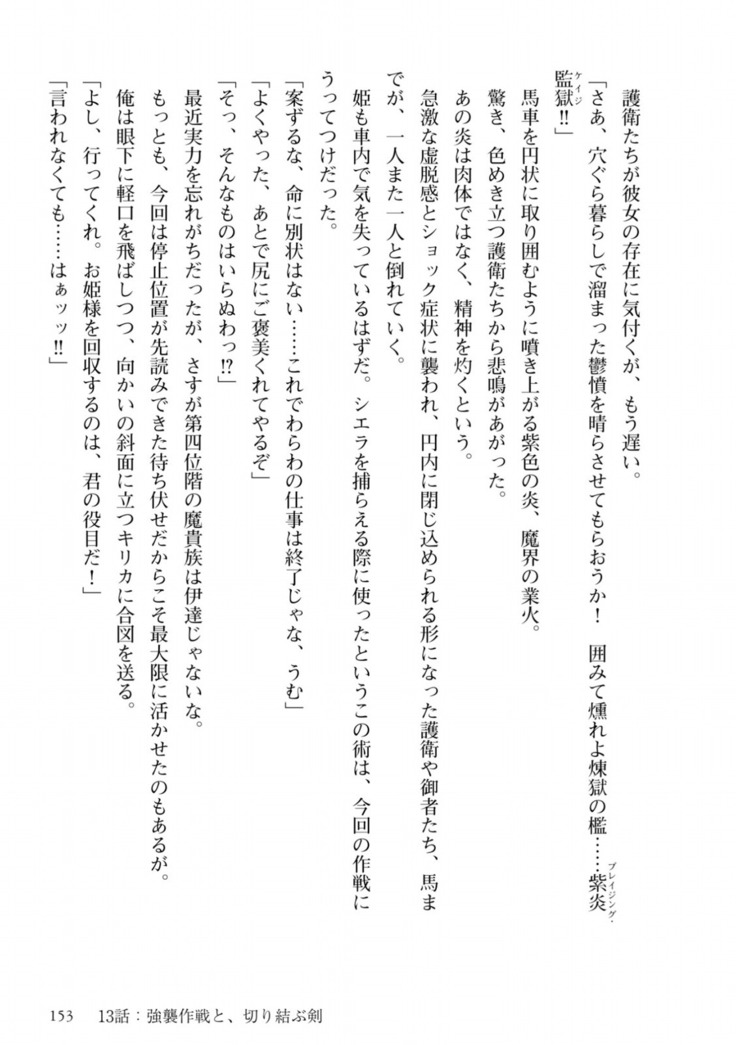 護衛たちが彼女の存在に気付くが、もう遅い。
「さあ、穴ぐら暮らしで溜まった鬱憤を晴らさせてもらおうか！　囲みて燻れよ煉獄の檻……紫炎
ブレイジング・
監獄!!」
ケイジ
馬車を円状に取り囲むように噴き上がる紫色の炎、魔界の業火。
驚き、色めき立つ護衛たちから悲鳴があがった。
あの炎は肉体ではなく、精神を灼くという。
急激な虚脱感とショック症状に襲われ、円内に閉じ込められる形になった護衛や御者たち、馬ま
でが、一人また一人と倒れていく。
姫も車内で気を失っているはずだ。シエラを捕らえる際に使ったというこの術は、今回の作戦に
うってつけだった。
「案ずるな、命に別状はない……これでわらわの仕事は終了じゃな、うむ」
「よくやった、あとで尻にご褒美くれてやるぞ」
「そっ、そんなものはいらぬわっ!?」
最近実力を忘れがちだったが、さすが第四位階の魔貴族は伊達じゃないな。
もっとも、今回は停止位置が先読みできた待ち伏せだからこそ最大限に活かせたのもあるが。
俺は眼下に軽口を飛ばしつつ、向かいの斜面に立つキリカに合図を送る。
「よし、行ってくれ。お姫様を回収するのは、君の役目だ！」
「言われなくても……はぁッッ!!」
153　13話：強襲作戦と、切り結ぶ剣